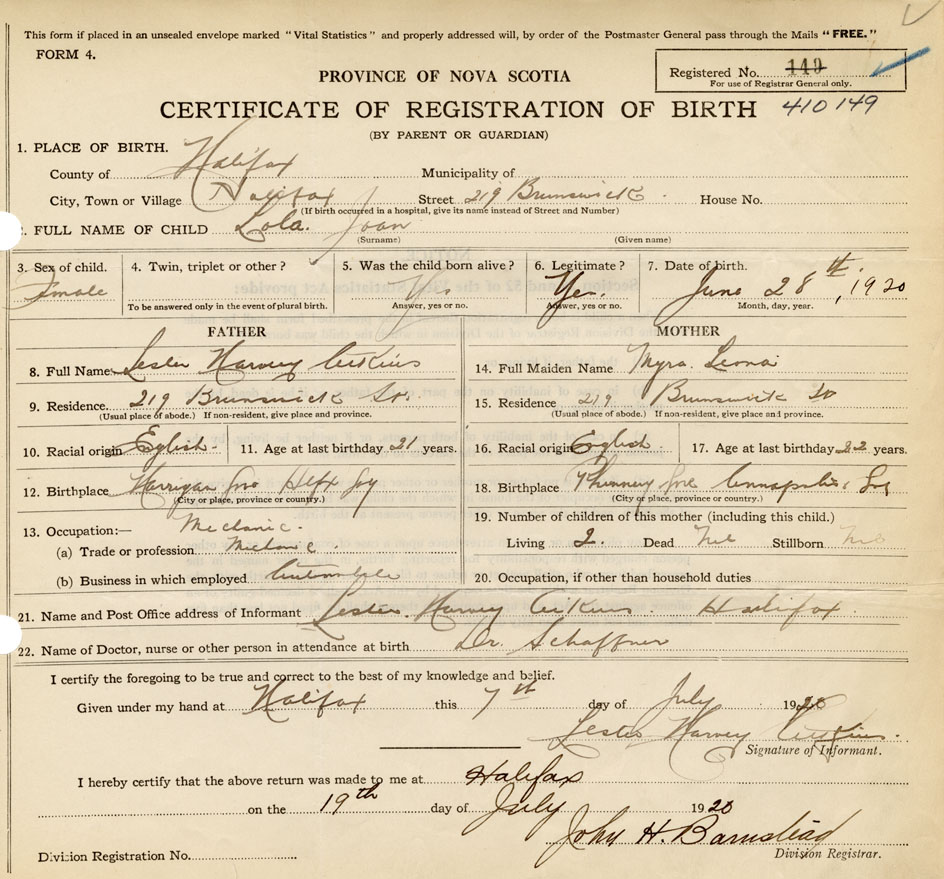 This form if placed in an unsealed envelope marked "Vital Statistics" and properly addressed will, by order of the Postmaster General pass through the Mails "FREE."
FORM 4.
Registered No. 149
For use of Registrar General only.
PROVINCE OF NOVA SCOTIA
CERTIFICATE OF REGISTRATION OF BIRTH 410 149
(BY PARENT OR GUARDIAN)
1. PLACE OF BIRTH.
County of Halifax Municipality of
City, Town or Village Halifax Street 219 Brunswick House No.
(If birth occurred in a hospital, give its name instead of Street and Number)
2. FULL NAME OF CHILD Lola. Joan
(Surname) (Given name)
3. Sex of child. 4. Twin, triplet or other? 5. Was the child born alive? 6. Legitimate? 7. Date of birth.
Female Yes Yes. June 28th, 1920
To be answered only in the event of plural birth. Answer, yes or no. Answer, yes or no. Month, day, year.
FATHER MOTHER
8. Full Name Lester Harvey Aikins
14. Full Maiden Name Myra Leona
9. Residence. 219 Brunswick
15. Residence 219 Brunswick
(Usual place of abode.) If non-resident, give place and province.
(Usual place of abode.) If non-resident, give place and province.
10. Racial origin English 11. Age at last birthday 21 years.
16. Racial origin English 17. Age at last birthday 22 years.
12. Birthplace Harrigan Hlfx
(City or place, province or country.)
18. Birthplace Annapolis
(City or place, province or country.)
13. Occupation:— Mechanic.
(a) Trade or profession Mechanic.
(b) Business in which employed Automobile
19. Number of children of this mother (including this child.)
Living 2 Dead Nil Stillborn Nil
20. Occupation, if other than household duties
21. Name and Post Office address of Informant Lester Harvey Aikins. Halifax.
22. Name of Doctor, nurse or other person in attendance at birth Dr. Schaffner
I certify the foregoing to be true and correct to the best of my knowledge and belief.
Given under my hand at Halifax this 7th day of July 1920
Lester Harvey Aikins.
Signature of Informant.
I hereby certify that the above return was made to me at Halifax
on the 19th day of July 1920
John H. Barnstead
Division Registrar.
Division Registration No.